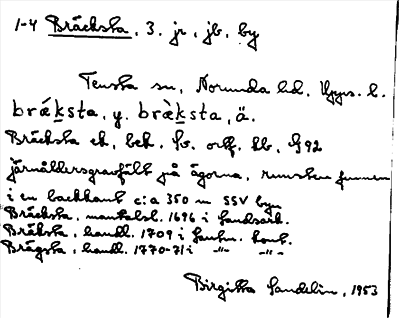 1-4 Bräcksta, 3. jr, jb, by
Tensta sn, Norunda hd, Upps. l.
brǽksta, y. bræ̀ksta, ä.
Bräcksta ek, bek. Sv. orlf. bl. § 92
järnåldersgravfält på ägorna, runsten funnen
i en backkant c:a 350 m SSV byn
Bräcksta, mantalsl. 1696 i Landsark.
Bräksta, handl. 1709 i Lantm. kont.
Brägsta, handl. 1770-71 i -"- -"-
Birgitta Sandelin, 1953